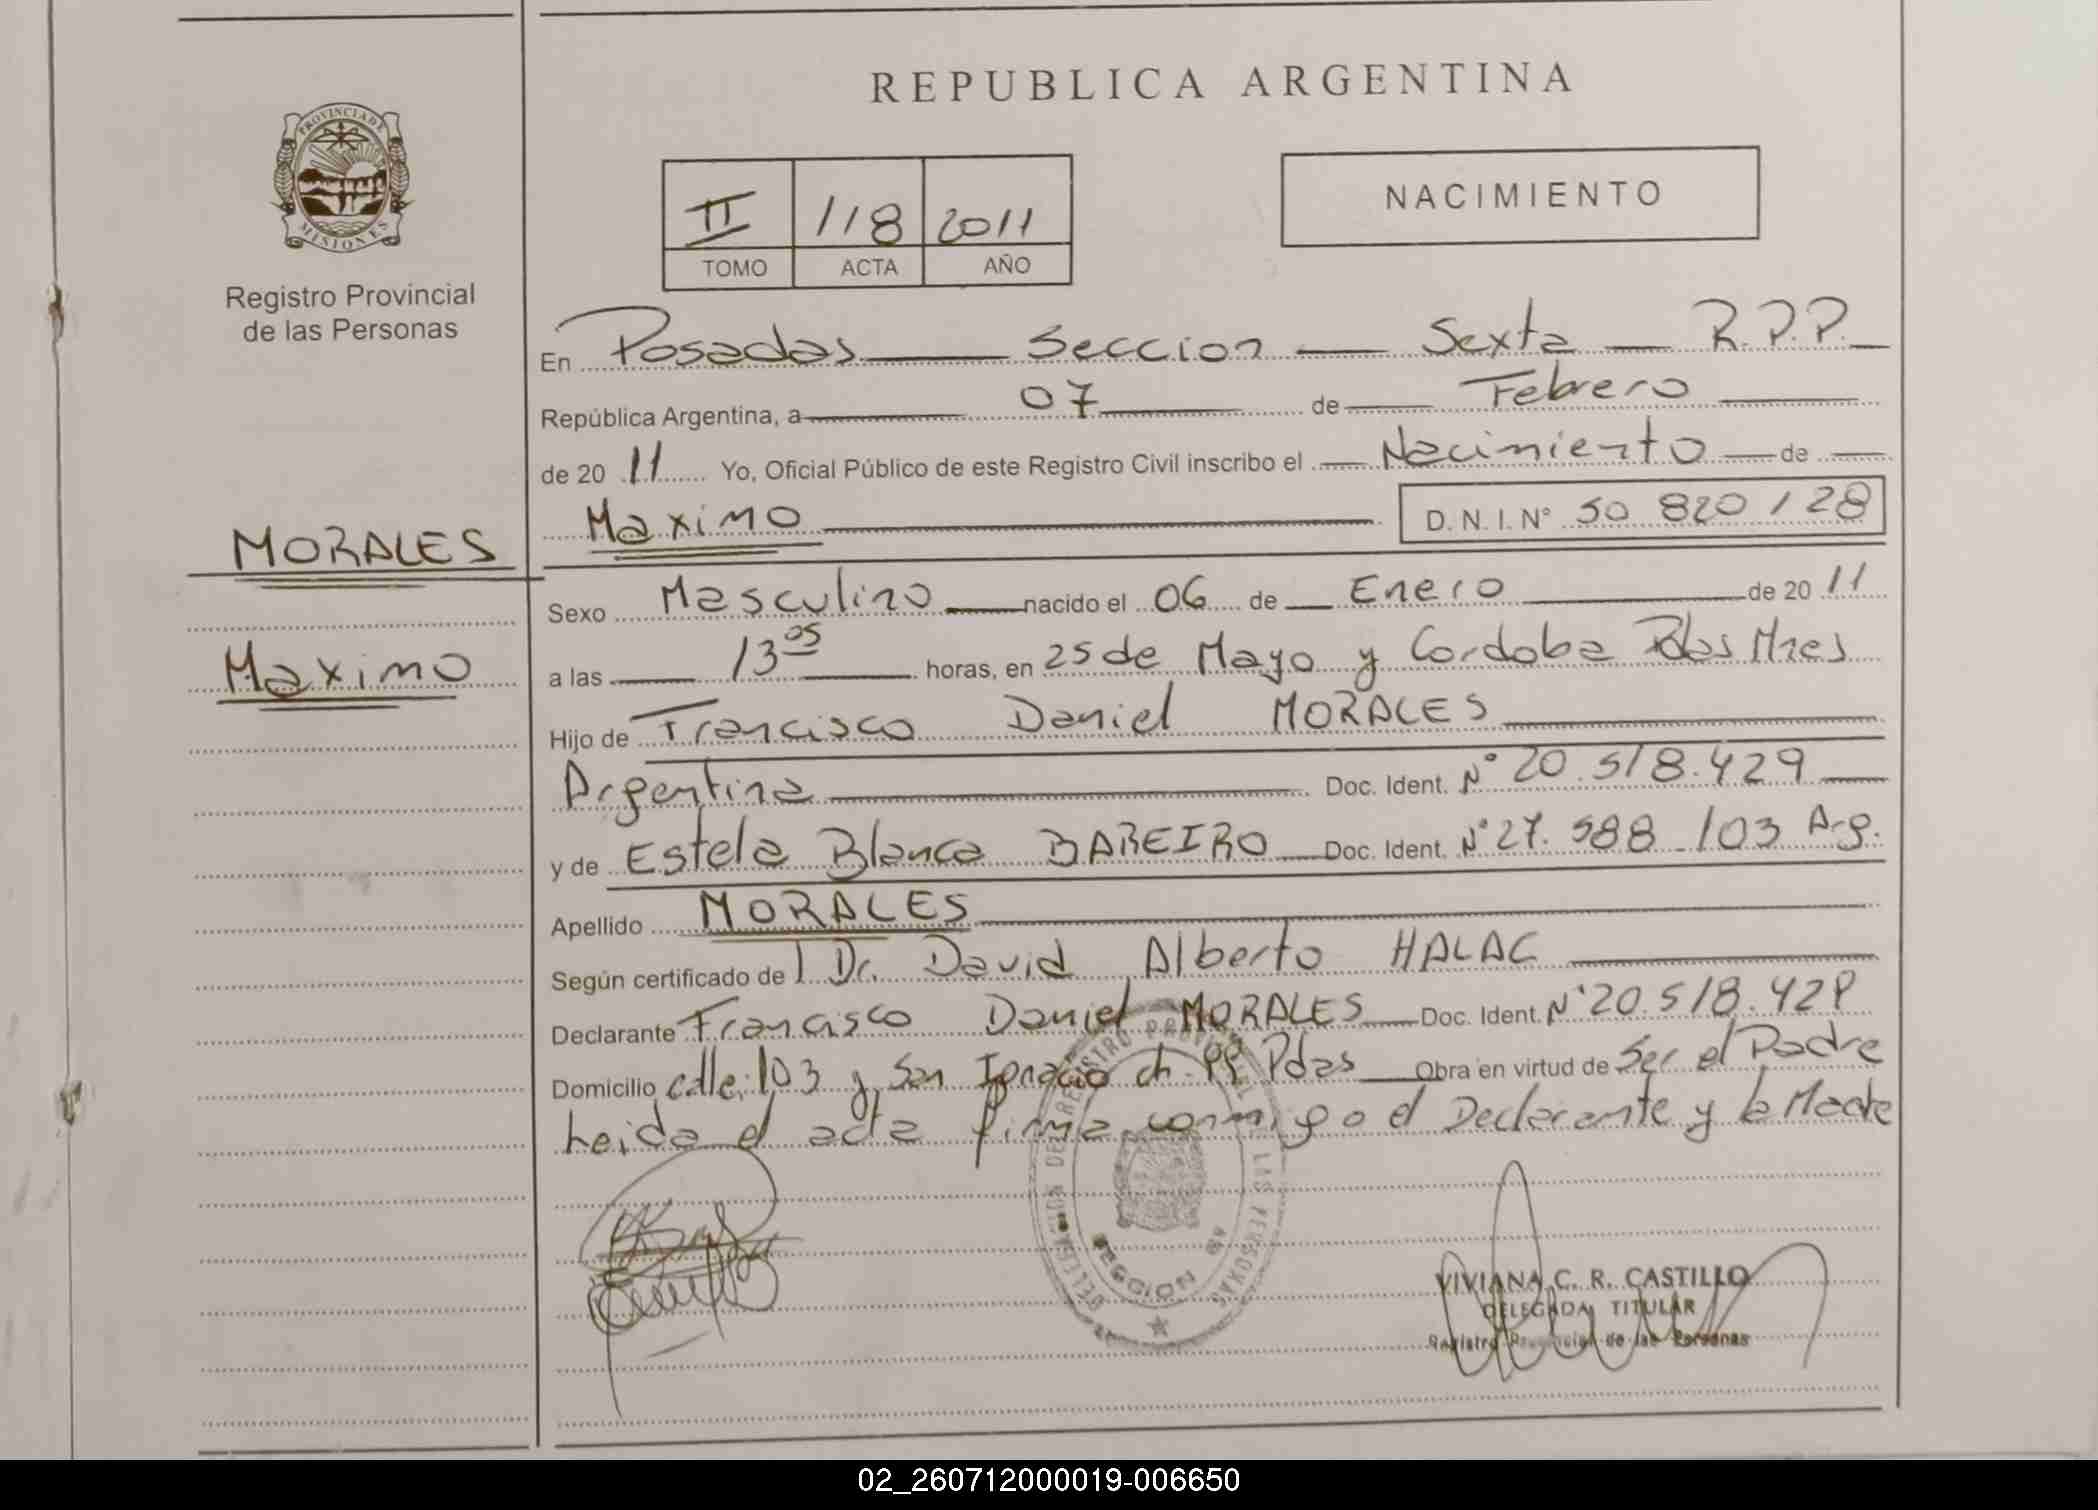 REPUBLICA ARGENTINA
PROVINCIA DE MISIONES
Registro Provincial
de las Personas
II 118 2011
TOMO ACTA AÑO
NACIMIENTO
En Posadas Seccion Sexta R.P.P.
República Argentina, a 07 de Febrero
de 20 11 Yo, Oficial Público de este Registro Civil inscribo el Nacimiento de
Maximo D. N. I. Nº 50 820 128
MORALES
Maximo
Sexo Masculino nacido el 06 de Enero de 20 11
a las 13 05 horas, en 25 de Mayo y Cordoba Pdas Mnes
Hijo de Francisco Daniel MORALES
Argentina Doc. Ident. Nº 20.518.429
y de Estela Blanca BAREIRO Doc. Ident. Nº 27.588.103 Arg.
Apellido MORALES
Según certificado de Dr. David Alberto HALAC
Declarante Francisco Daniel MORALES Doc. Ident. Nº 20.518.429
Domicilio calle 103 y San Ignacio ch. Pdas Obra en virtud de Ser el Padre
Leida el acta firma conmigo el Declarante y la Madre
DELEGACION DEL REGISTRO PROVINCIAL DE LAS PERSONAS
SECCION
VIVIANA C. R. CASTILLO
DELEGADA TITULAR
Registro Provincial de las Personas
02_260712000019-006650